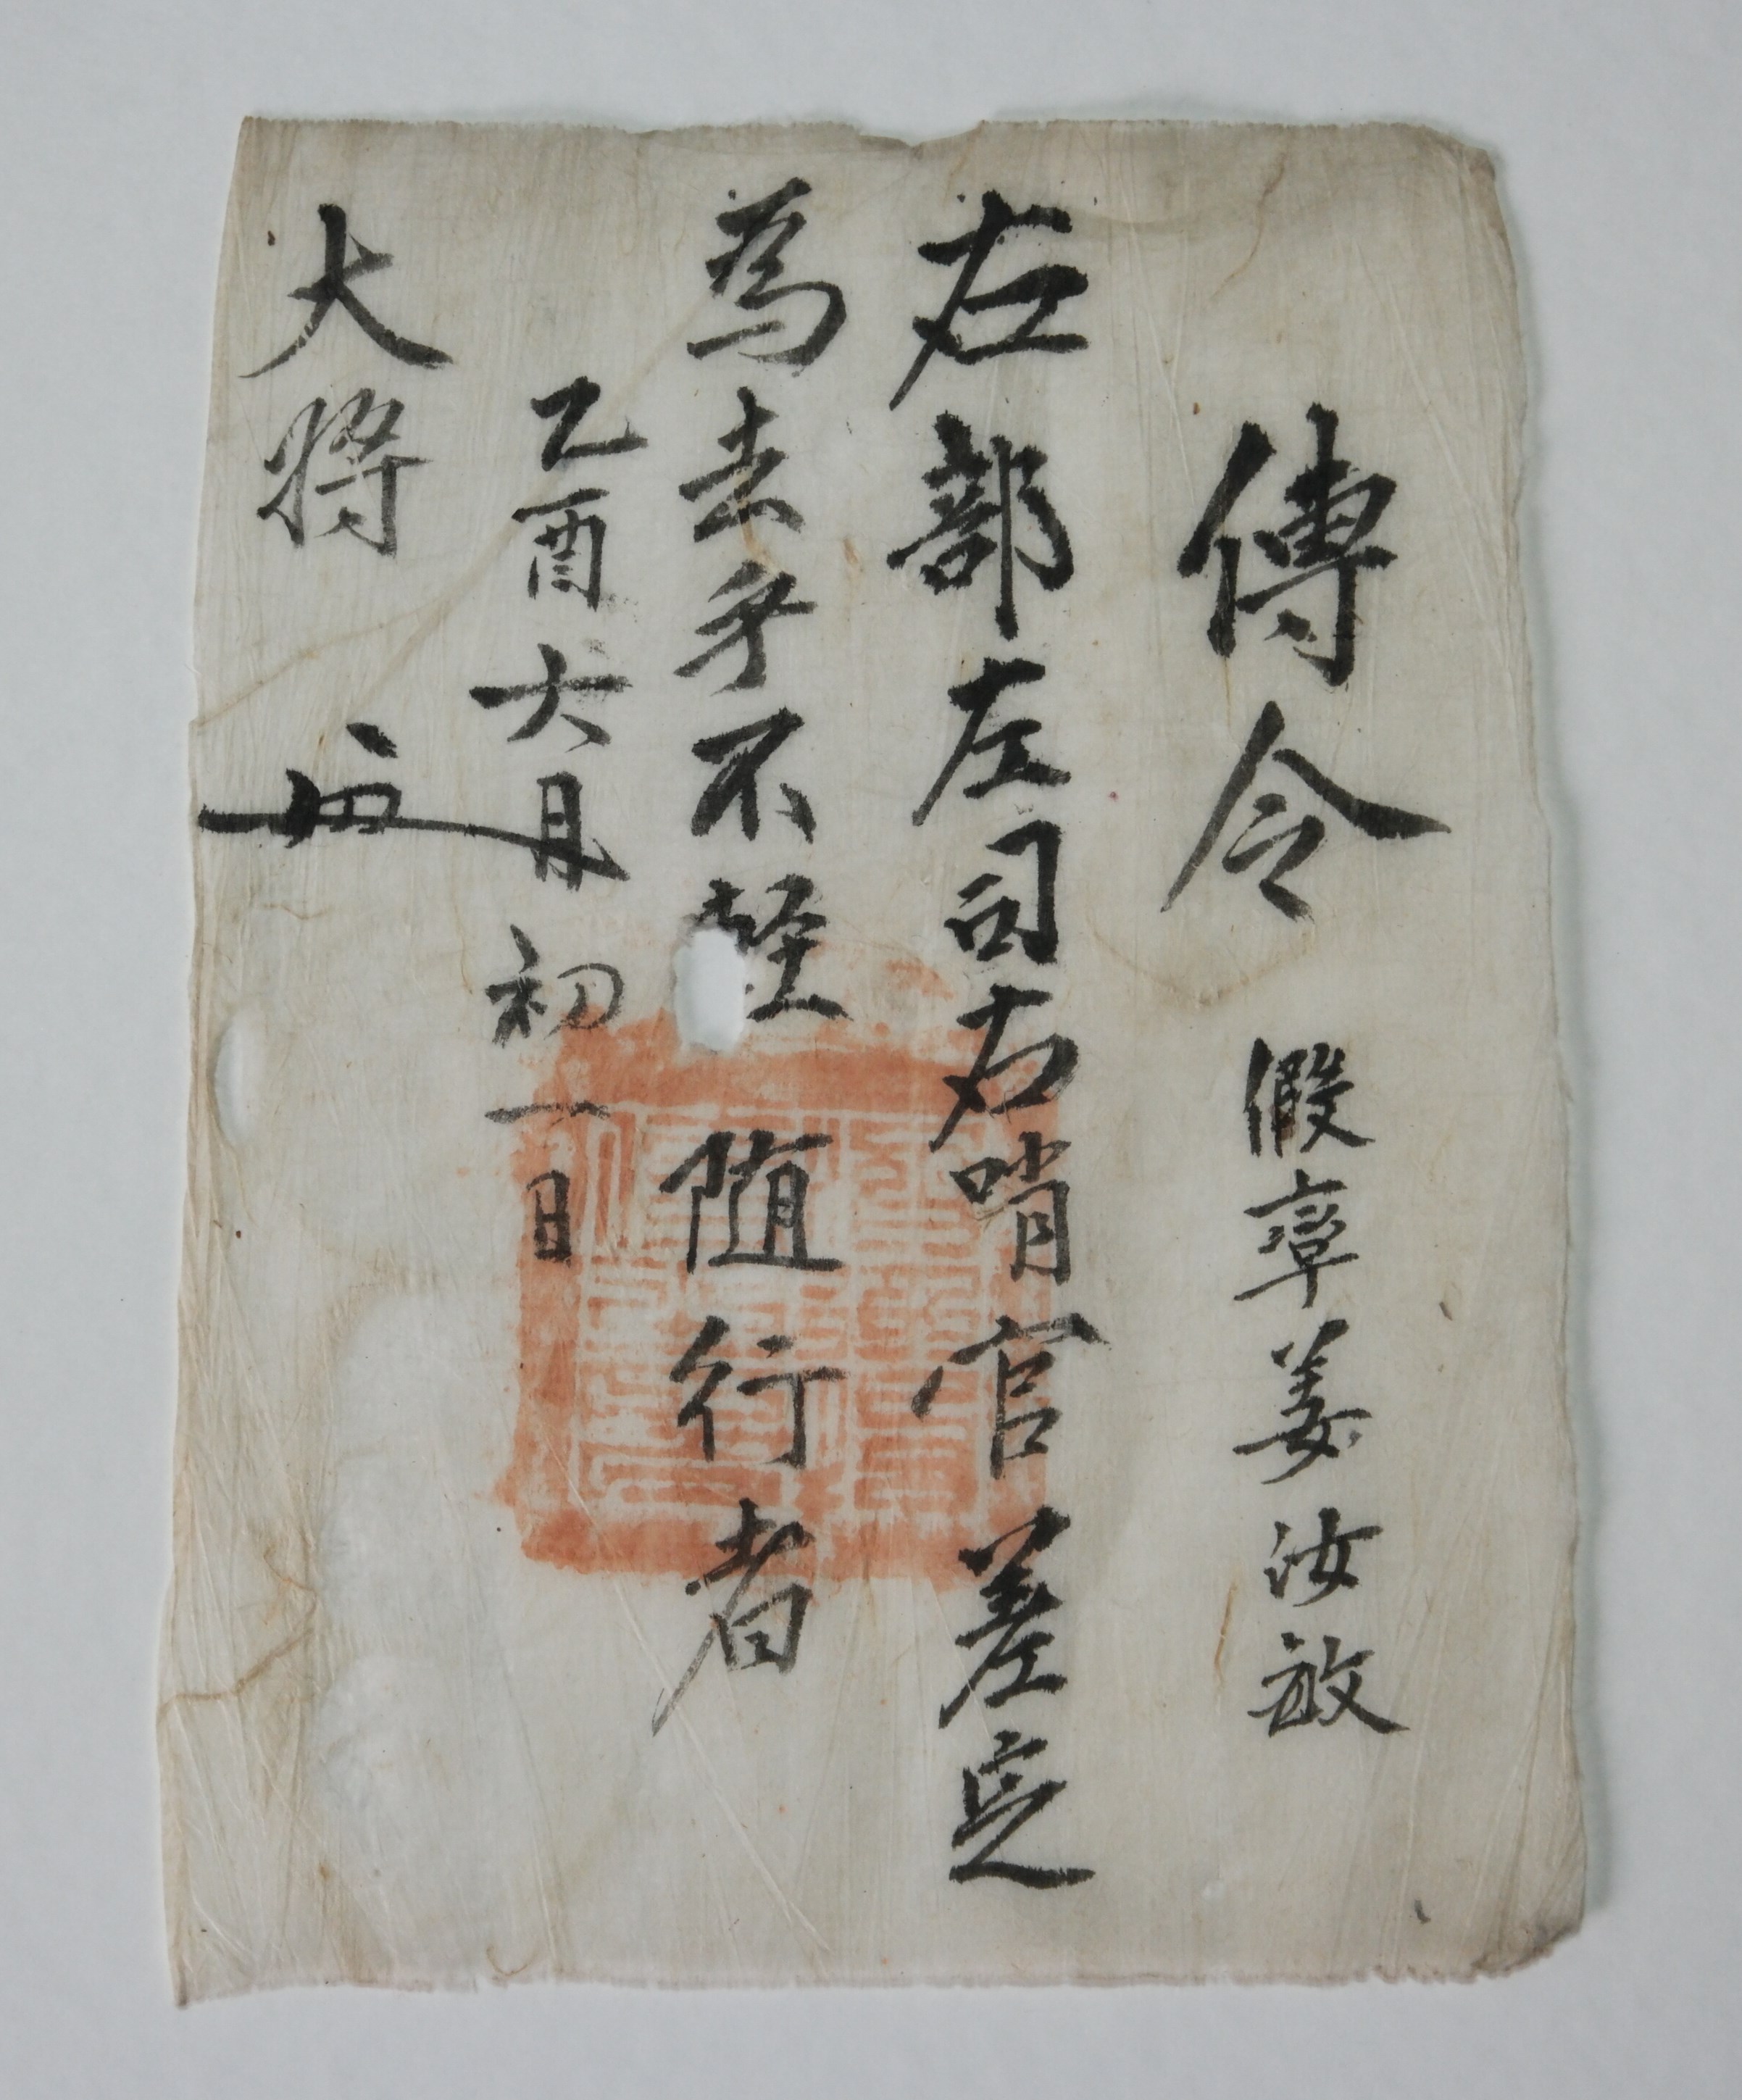 傳令 假率姜汝敏
左部左司右哨官差定
為去乎不輕随行者
乙酉六月初一日
大將